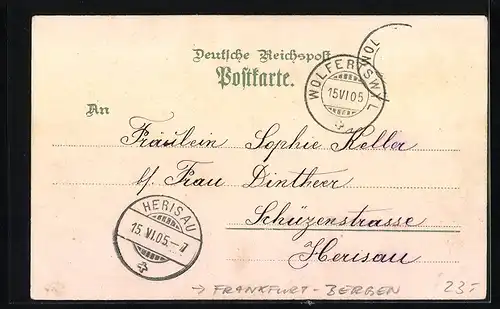 Deutsche Reichspost
Postkarte.
WOLFERTSWYL
15 VI 05
WOL
An
Fräulein Sophie Keller
b/ Frau Dintheer
Schüzenstrasse
Herisau
HERISAU
15. VI. 05. – 7
→ FRANKFURT - BERGEN
23.-